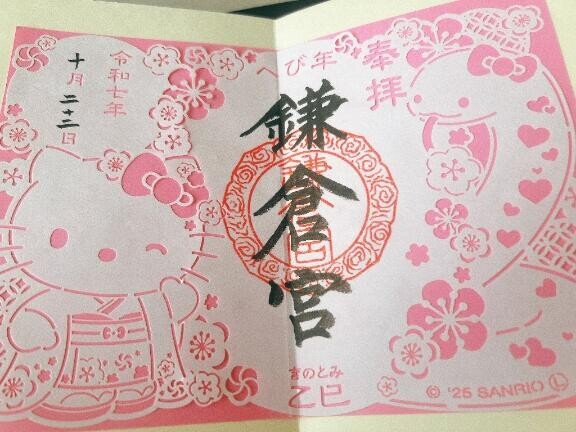 奉拝
へび年
鎌倉宮
きのとみ
乙巳
令和七年
十月二十二日
© '25 SANRIO Ⓛ